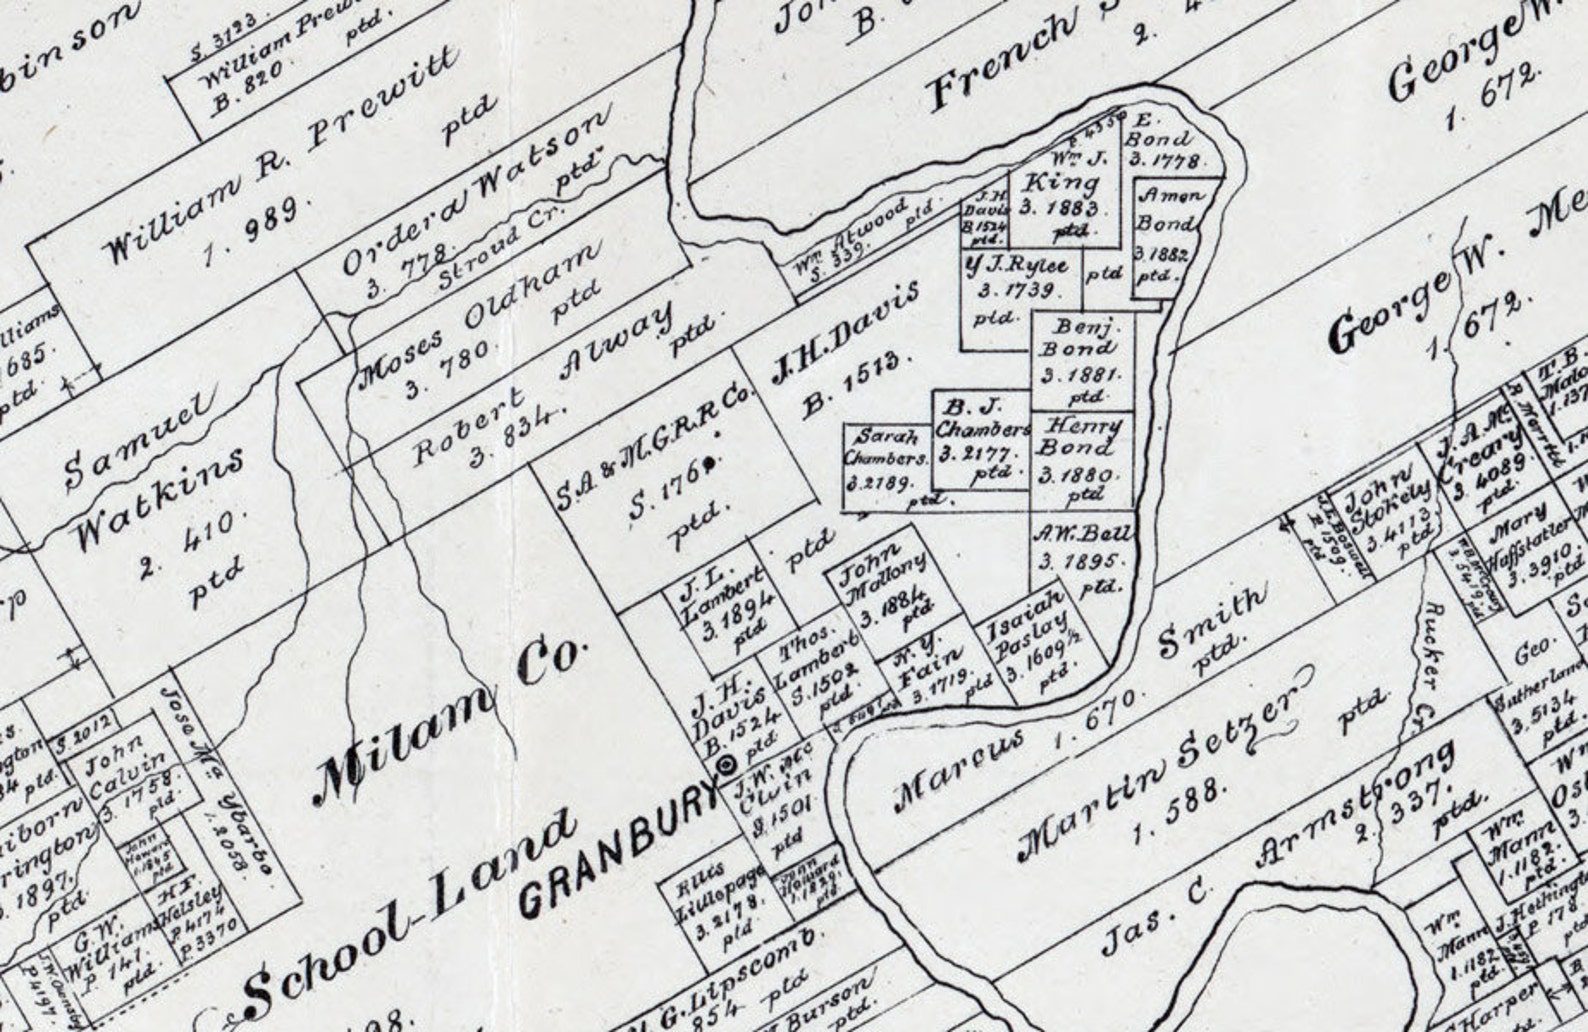 binson
S. 3123.
William Prew
B. 820. ptd.
William R. Prewitt
1. 989. ptd
Ordera Watson
3. 778. ptd
Stroud Cr.
Moses Oldham
3. 780. ptd
Robert Alway
3. 834. ptd.
lliams
685.
ptd.
Samuel
Watkins
2. 410.
ptd
French
2. 4
B.
George W.
1. 672.
George W. Me
1. 672.
Wm. Atwood
S. 339. ptd.
J.H.
Davis
B.1524
ptd.
Wm J.
King
3. 1883.
ptd.
E.
Bond
3. 1778.
Amon
Bond
3.1882
ptd.
Y J. Rylee
3. 1739.
ptd.
ptd
J.H. Davis
B. 1513.
Benj.
Bond
3. 1881.
ptd.
B. J.
Chambers
3. 2177.
ptd.
Henry
Bond
3. 1880.
ptd
Sarah
Chambers.
3.2189.
ptd.
A.W. Bell
3. 1895.
ptd.
S.A & M.G.R.R Co.
S. 176
ptd.
ptd
J. L.
Lambert
3. 1894
ptd
John
Mallony
3. 1884.
ptd.
Thos.
Lambert
S. 1502
ptd.
N. Y.
Fain
3. 1719.
ptd
Isaiah
Paslay
3. 1609½
ptd.
J. H.
Davis
B. 1524
ptd
J. W. Mc
S. 1501
ptd
GRANBURY
Milam Co.
School-Land
Ellis
Lillepage
3. 2178.
ptd
John
Howard
1. 1829.
ptd.
G. Lipscomb.
854 ptd
Burson
ptd.
Marcus Smith
1. 670. ptd.
Martin Setzer
1. 588. ptd.
Jas. C. Armstrong
2. 337.
ptd.
Rucker Cr.
J.E. Boswell
B. 1509.
ptd
John
Stokely
3. 4113.
ptd
J.A. Mc
Creary
3. 4089.
ptd.
T. B.
1. 137
Mary
Huffstatler
3. 3910.
ptd.
Geo.
Sutherland
3. 5134
ptd.
Wm
Wm.
Mann
1. 1182.
ptd.
Wm
Mann
1. 1182
ptd.
J. Hethington
P. 178
ptd
Harper
ptd.
S. 2012
John
Calvin
3. 1758.
ptd.
Jose Ma Ybarbo.
1. 2058.
John
Howard
1. 1845
ptd
H F.
Helsley
P. 4174
P. 3370
G.W.
Williams
P. 141.
ptd.
J.W. Ownsby
P. 4197.
rington
1897.
ptd.
98.